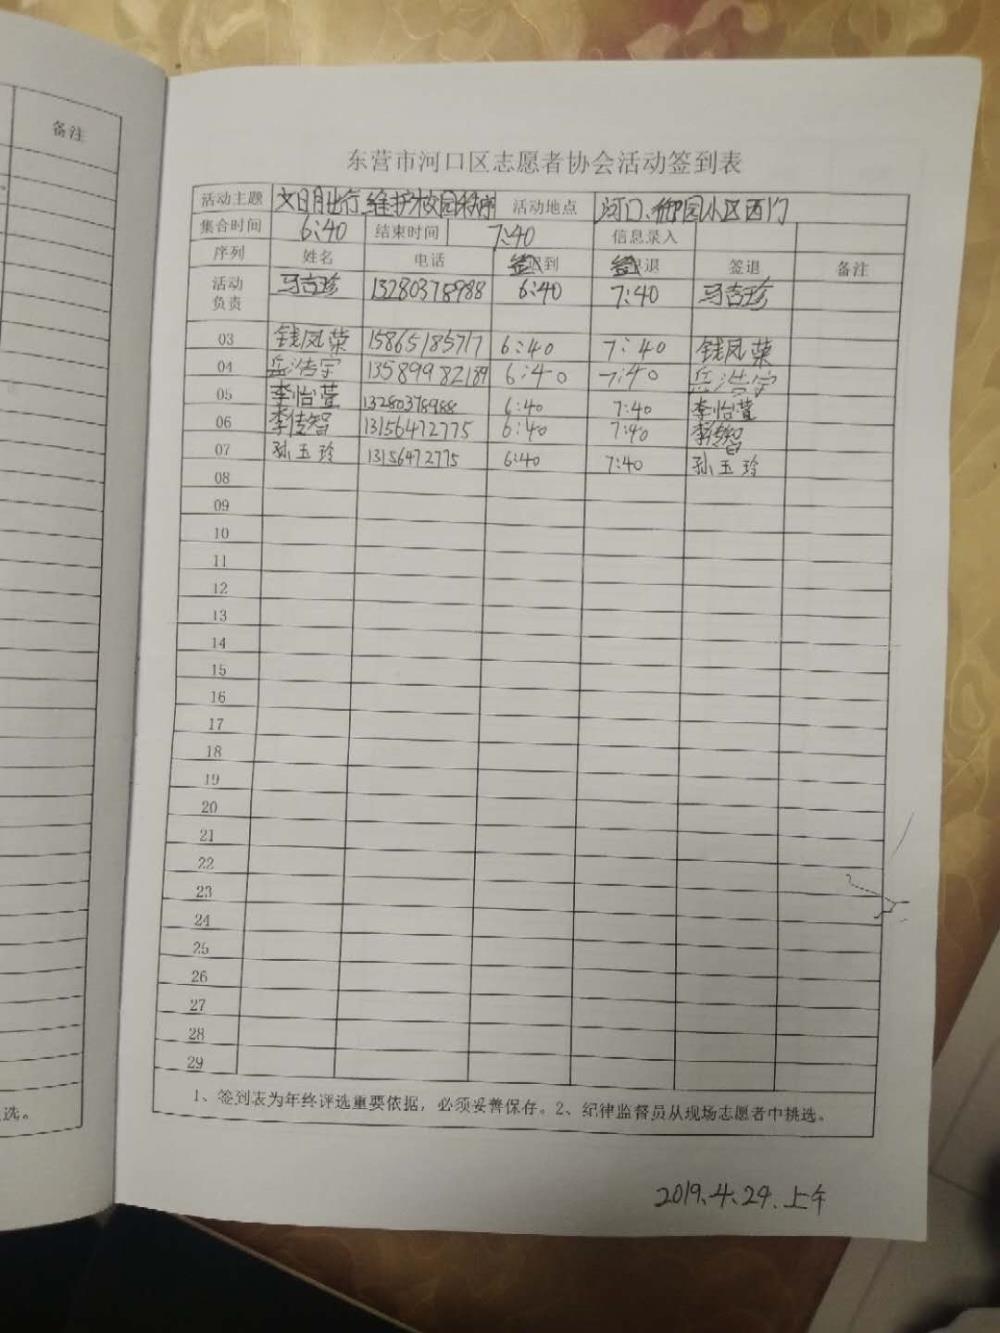 备注
选。
东营市河口区志愿者协会活动签到表
活动主题 文明出行 维护校园秩序 活动地点 河口、御园小区西门
集合时间 6:40 结束时间 7:40 信息录入
序列 姓名 电话 签到 签退 签退 备注
活动负责 马吉珍 13280378988 6:40 7:40 马吉珍
03 钱凤荣 15865185717 6:40 7:40 钱凤荣
04 岳浩宇 13589982189 6:40 7:40 岳浩宇
05 李怡萱 13280378988 6:40 7:40 李怡萱
06 李传智 13156472775 6:40 7:40 李传智
07 孙玉玲 13156472775 6:40 7:40 孙玉玲
08
09
10
11
12
13
14
15
16
17
18
19
20
21
22
23
24
25
26
27
28
29
1、签到表为年终评选重要依据，必须妥善保存。2、纪律监督员从现场志愿者中挑选。
2019.4.24.上午